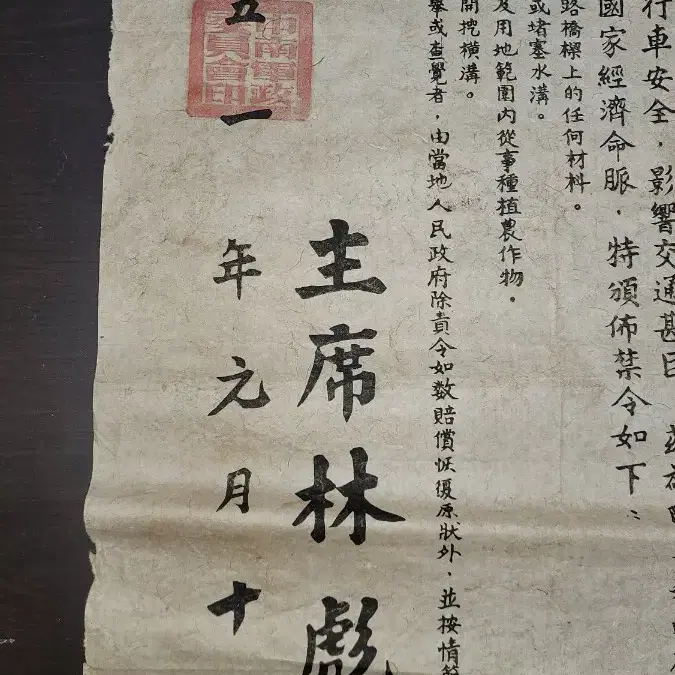 行車安全，影響交通甚巨
國家經濟命脈，特頒佈禁令如下：
路橋樑上的任何材料。
或堵塞水溝。
及用地範圍內從事種植農作物。
開挖橫溝。
舉或查覺者，由當地人民政府除責令如数賠償恢復原狀外，並按情
主席林彪
五一年元月十
中南軍政委員會印